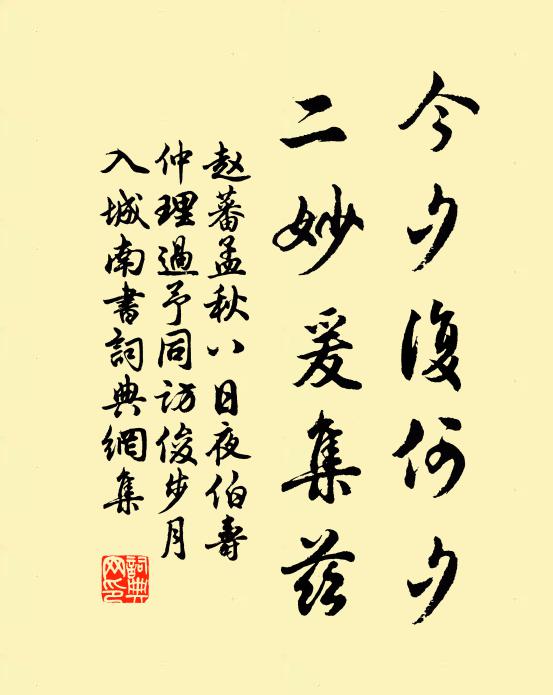 今夕復何夕
二妙爰集茲
赵蕃孟秋八日夜伯壽
仲理過予同访俊步月
入城南書詞典網集
詞典
网印